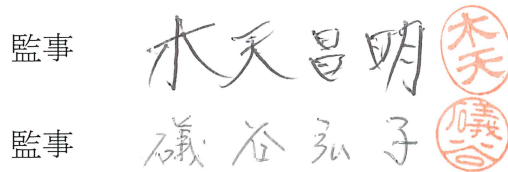 監事 木天昌明 木天
監事 礒谷弘子 礒谷